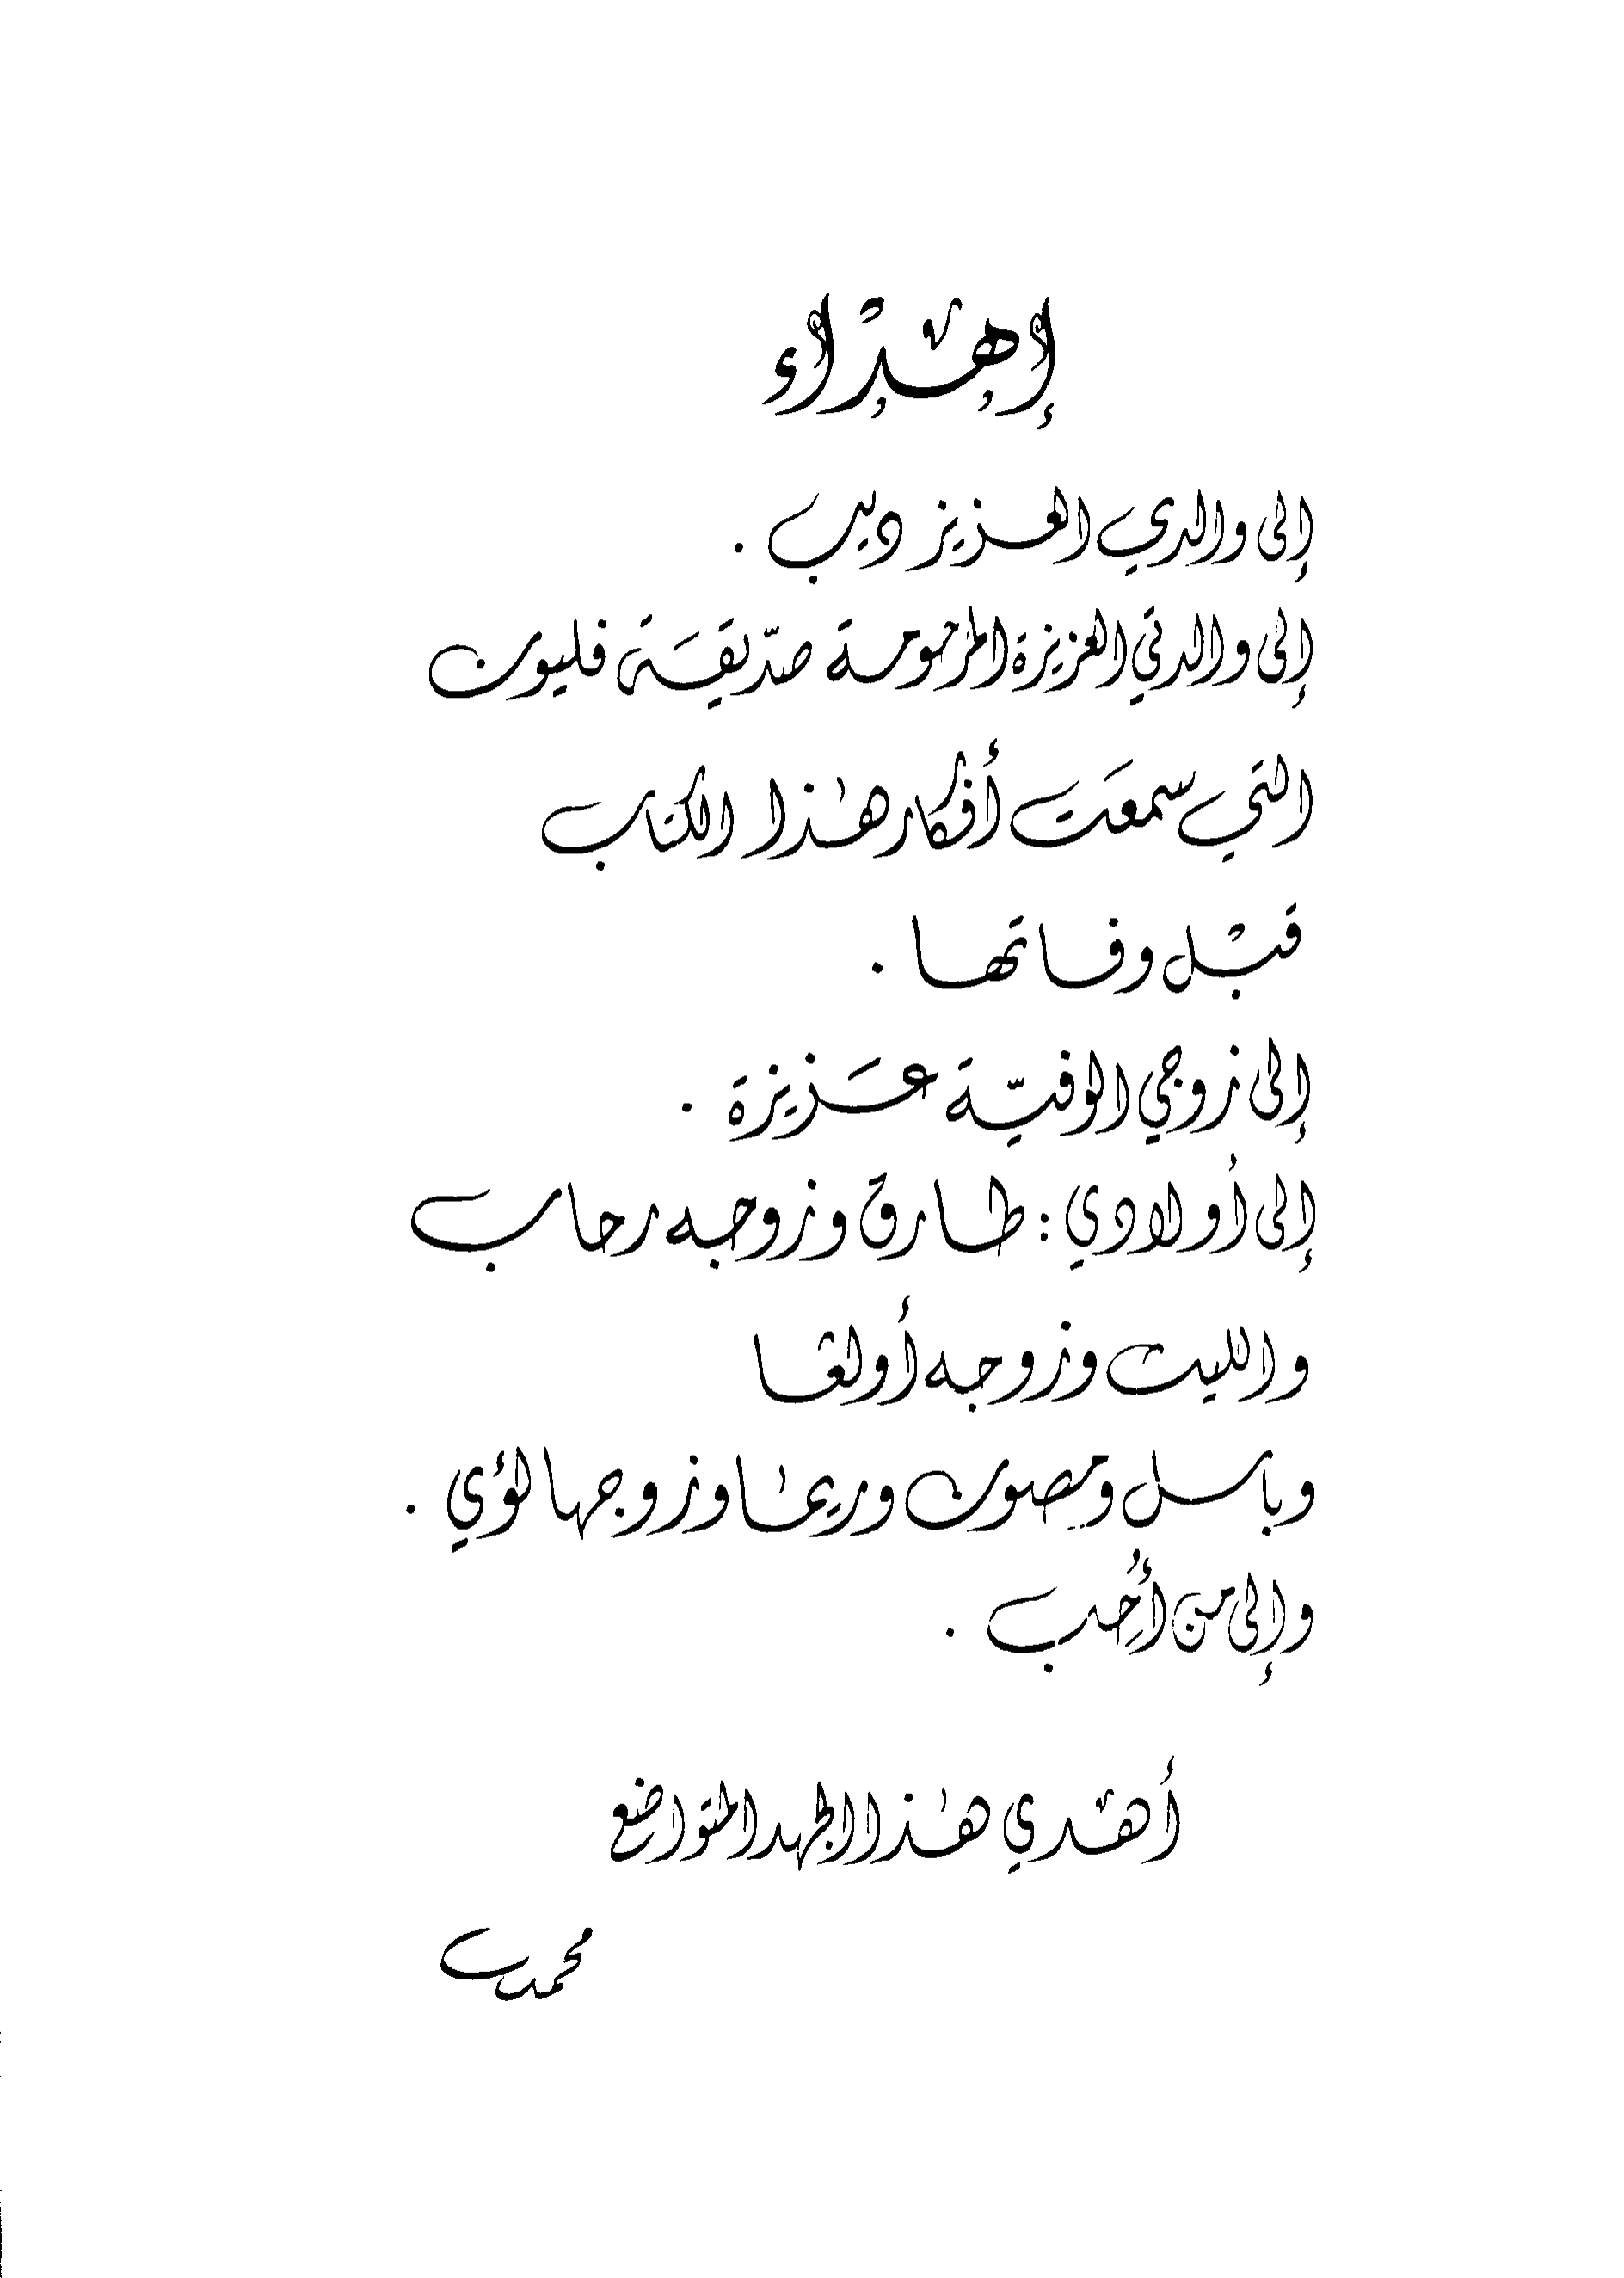 إهداء
إلى والدي العزيز ديب .
إلى والدتي العزيزة المرحومة صدّيقَة فليون
التي سمعَت أفكار هذا الكتاب
قبْل وفاتها .
إلى زوجي الوفيّة عَزيزة .
إلى أولادي : طارق وزوجه رحاب
والليث وزوجه أولغا
وباسل ومصون وريما وزوجها لؤي .
وإلى من أُحِب .
أهدي هذا الجهد المتواضع
محمد